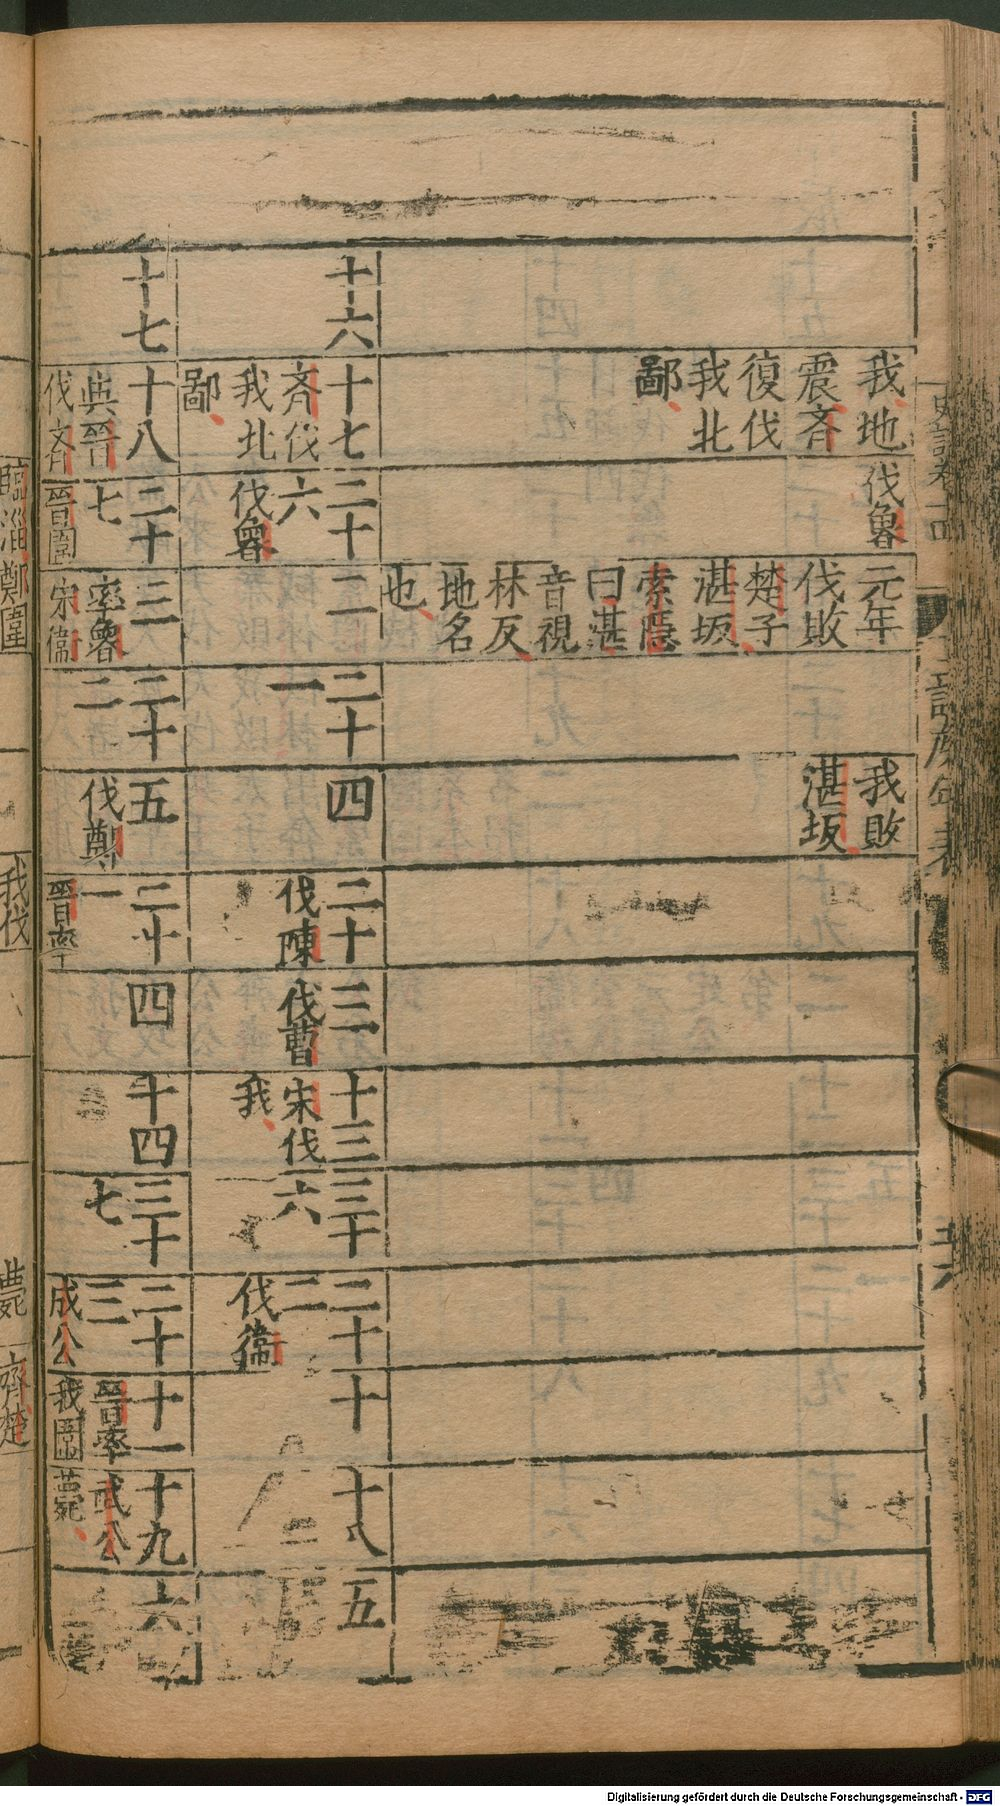 我地
震齐
復伐
我北
鄙
伐魯
元年
伐敗
楚子
湛坂
索隱
曰湛
音視
林反
地名
也
我敗
湛坂
十六
十七
齐伐
我北
鄙
二十
六
伐魯
二
二十
一
四
二十
伐陳
三
伐曹
十三
宋伐
我
三十
六
二十
二
伐衛
十
十八
五
十七
十八
與晉
伐齐
二十
七
晉圍
三
率魯
宋衛
二十
二
五
伐鄭
二十
一
晉率
四
十四
三十
七
二十
三
成公
十一
晉率
我圍
十九
武公
薨
六
臨淄鄭圍
我伐
薨
齊楚
Digitalisierung gefördert durch die Deutsche Forschungsgemeinschaft - DFG